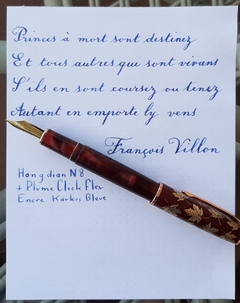 Princes à mort sont destinez
Et tous autres que sont vivans
S'ils en sont coursez ou tenez
Autant en emporte ly vens
François Villon
Hongdian N8
+ Plume Click Flex
Encre Karkos Bleue